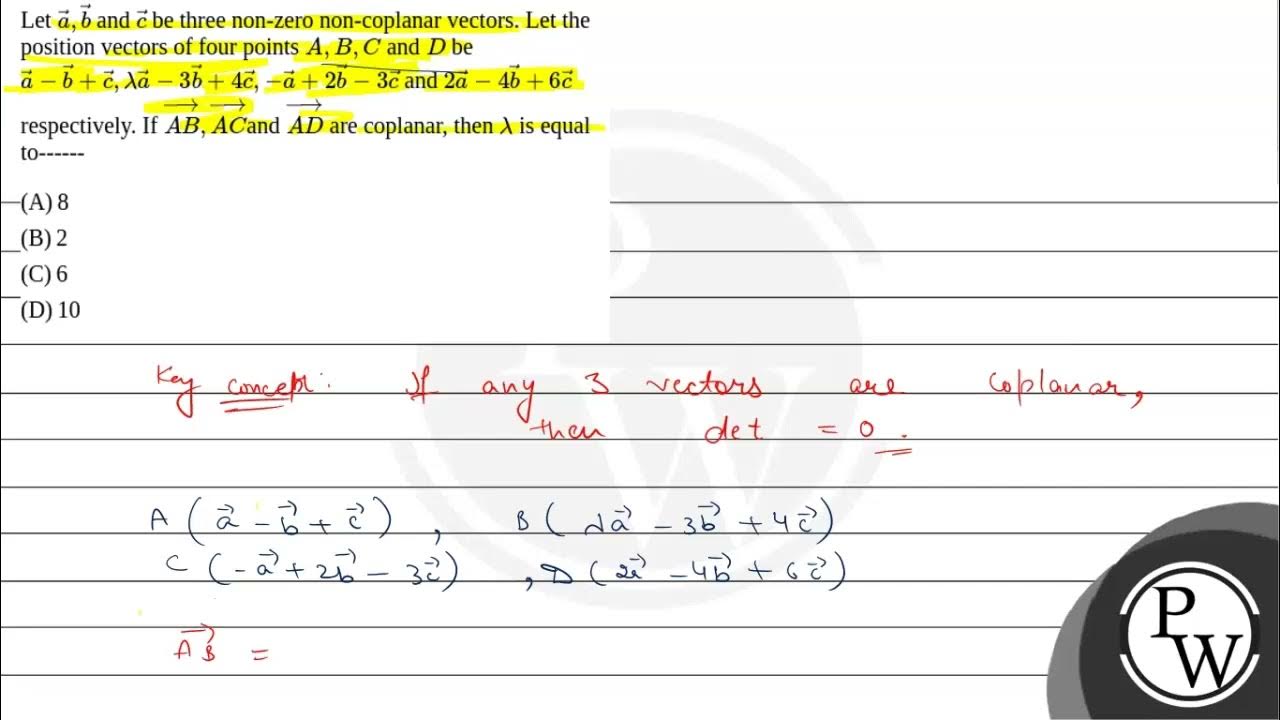 Let a⃗, b⃗ and c⃗ be three non-zero non-coplanar vectors. Let the
position vectors of four points A, B, C and D be
a⃗ − b⃗ + c⃗, λa⃗ − 3b⃗ + 4c⃗, −a⃗ + 2b⃗ − 3c⃗ and 2a⃗ − 4b⃗ + 6c⃗
respectively. If A⃗B⃗, A⃗C⃗and A⃗D⃗ are coplanar, then λ is equal
to------
(A) 8
(B) 2
(C) 6
(D) 10
Key concept: If any 3 vectors are coplanar,
then det = 0.
A (a⃗ − b⃗ + c⃗), B (λa⃗ − 3b⃗ + 4c⃗)
C (−a⃗ + 2b⃗ − 3c⃗), D (2a⃗ − 4b⃗ + 6c⃗)
A⃗B⃗ =
P
W